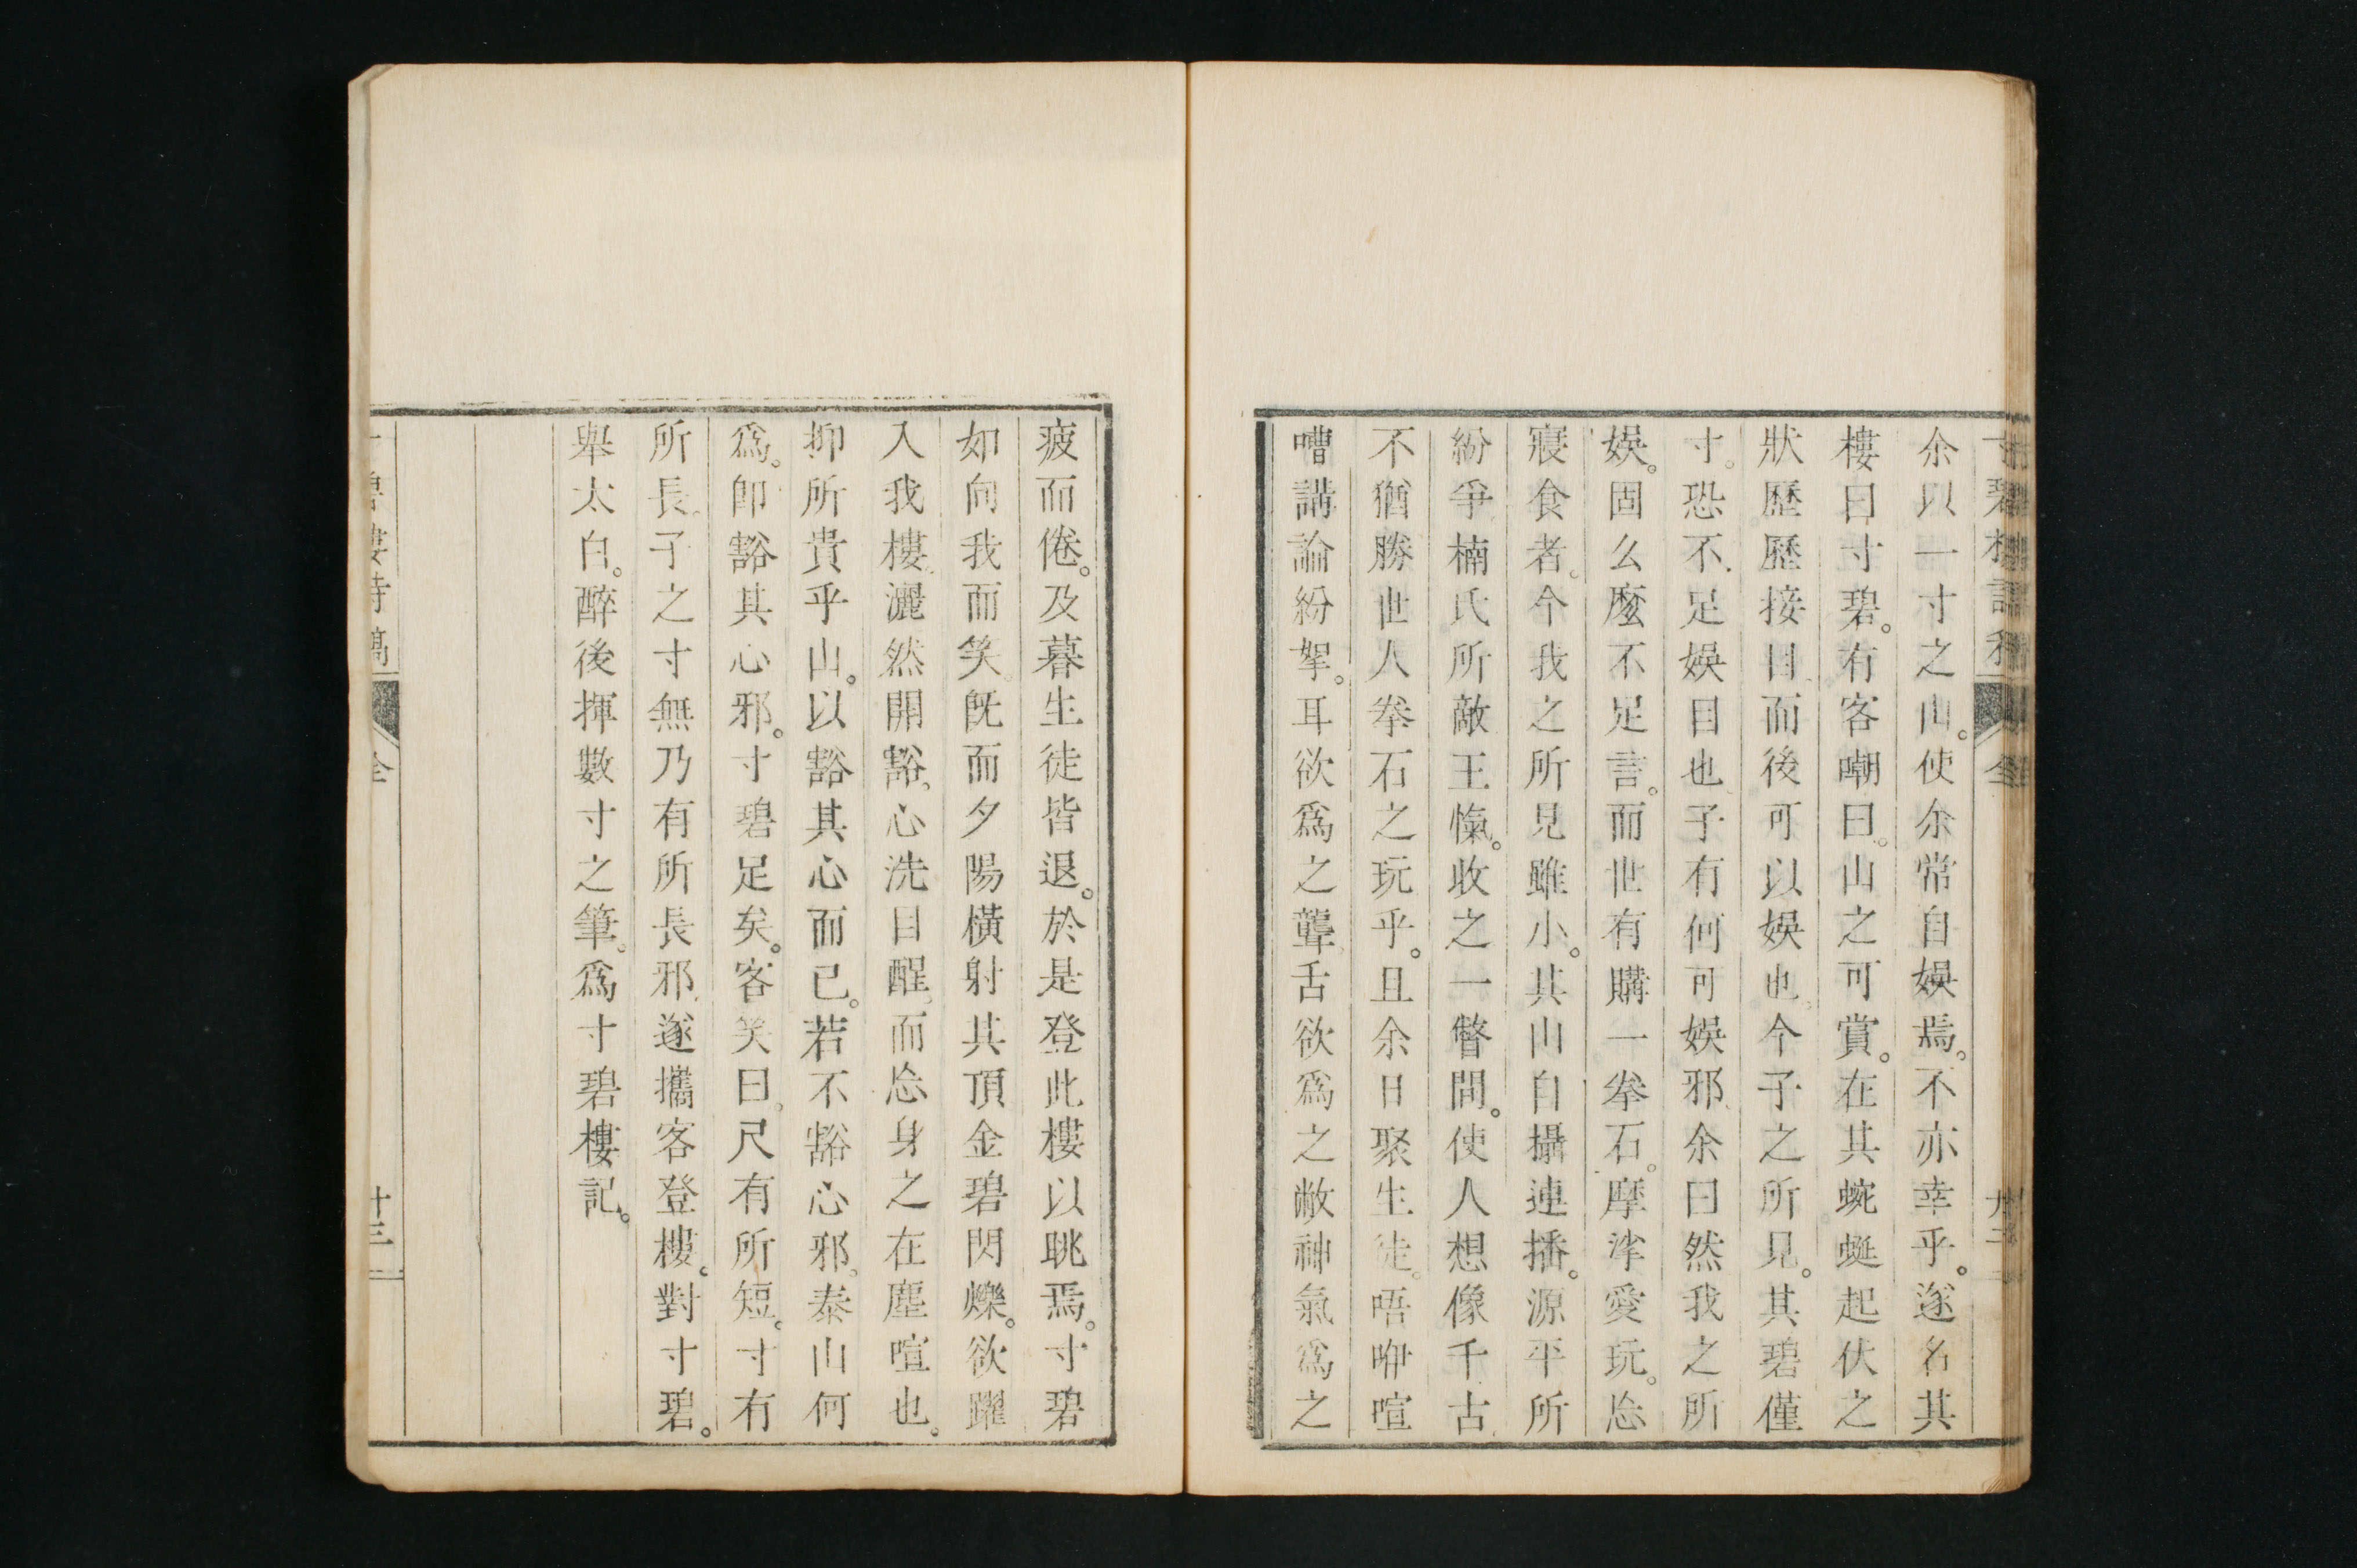 余以一寸之山。使余常自娯焉。不亦幸乎。遂名其
樓曰寸碧。有客嘲曰。山之可賞。在其蜿蜒起伏之
狀歷歷接目。而後可以娯也。今子之所見。其碧僅
寸。恐不足娯目也。子有何可娯邪。余曰然我之所
娯。固么麼不足言。而世有購一拳石。摩挲愛玩。忘
寢食者。今我之所見雖小。其山自攝連播。源平所
紛爭。楠氏所敵王愾。收之一瞥間。使人想像千古
不猶勝世人拳石之玩乎。且余日聚生徒。唔咿喧
嘈講論紛挐。耳欲爲之聾。舌欲爲之敝神氣爲之
疲而倦。及暮生徒皆退。於是登此樓以眺焉。寸碧
如向我而笑。既而夕陽橫射其頂金碧閃爍。欲躍
入我樓。灑然開豁。心洗目醒。而忘身之在塵喧也。
抑所貴乎山。以豁其心而已。若不豁心邪。泰山何
爲。卽豁其心邪。寸碧足矣。客笑曰。尺有所短。寸有
所長。子之寸無乃有所長邪。遂攜客登樓。對寸碧。
舉太白。醉後揮數寸之筆。爲寸碧樓記。
全
廿三